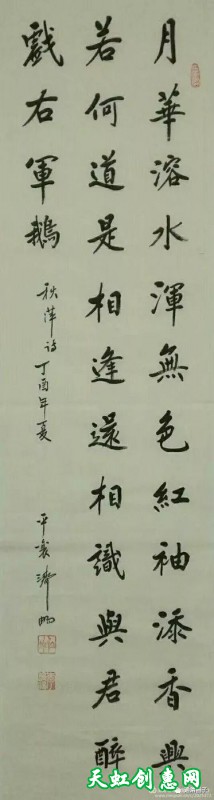 月華溶水渾無色紅袖添香興
若何道是相逢還相識與君醉
戲右軍鵝
秋萍詩丁酉年夏
天虹创惠网